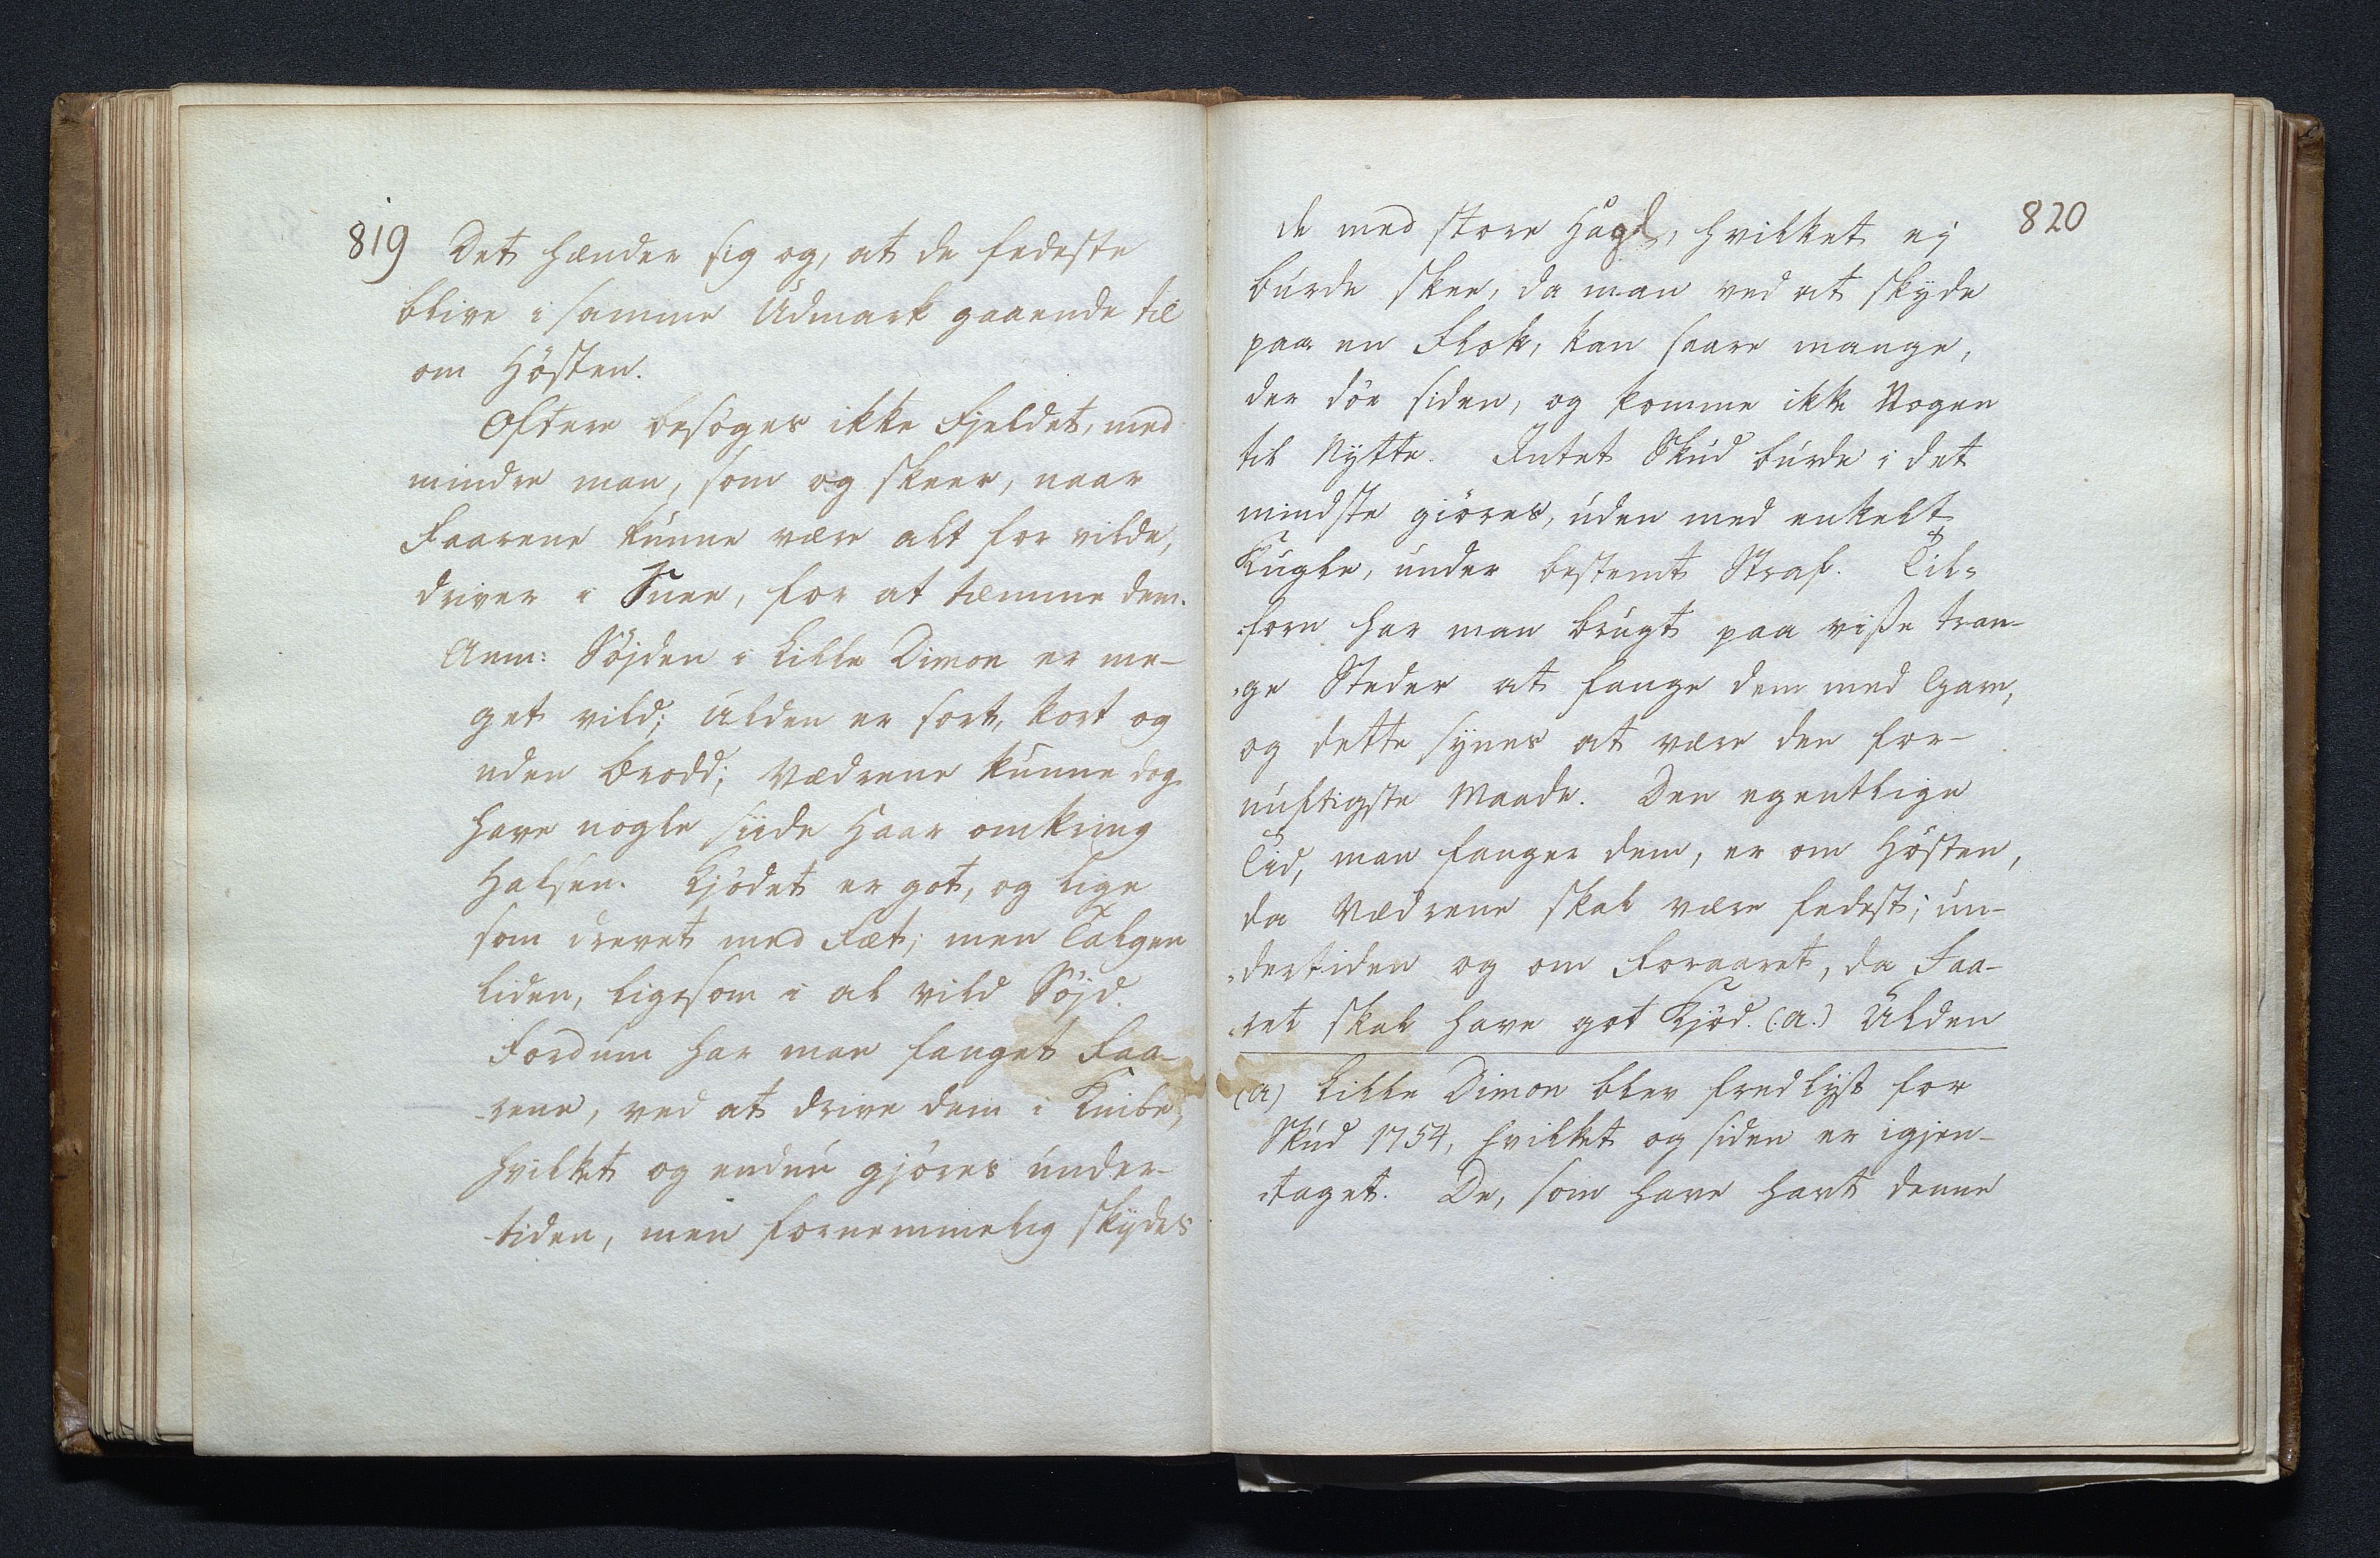 819 Det hænder sig og, at de fedeste
blive i samme Udmark gaaende til
om Hösten.
Oftere besöges ikke Fjeldet, med
mindre man, som og skeer, naar
Faarene kunne være alt for vilde,
driver i Snee, for at tæmme dem.
Anm: Söjden i Lille Dimon er me-
get vild; Ulden er sort, kort og
uden Brodd; Vædrene kunne dog
have nogle siide Haar omkring
Halsen. Kjödet er got, og lige
som drevet med Fæt; men Talgen
liden, ligesom i al vild Söjd.
Fordum har man fanget Faa-
rene, ved at drive dem i Knibe,
hvilket og endnu gjöres under-
tiden, men fornemmelig skydes
820
de med store Hagl, hvilket ej
burde skee, da man ved at skyde
paa en Flok, kan saare mange,
der döe siden, og komme ikke Nogen
til Nytte. Intet Skud burde i det
mindste giöres, uden med enkelt
Kugle, under bestemt Straf. Til=
forn har man brugt paa visse tran-
ge Steder at fange dem med Garn,
og dette synes at være den for-
nuftigste Maade. Den egentlige
Tid, man fanger dem, er om Hösten,
da Vædrene skal være fedest; un-
dertiden og om Foraaret, da Faa-
ret skal have got Kjöd. (:a.) Ulden
(a) Lille Dimon blev fredlyst for
Skud 1754, hvilket og siden er igjen-
taget. De, som have havt denne